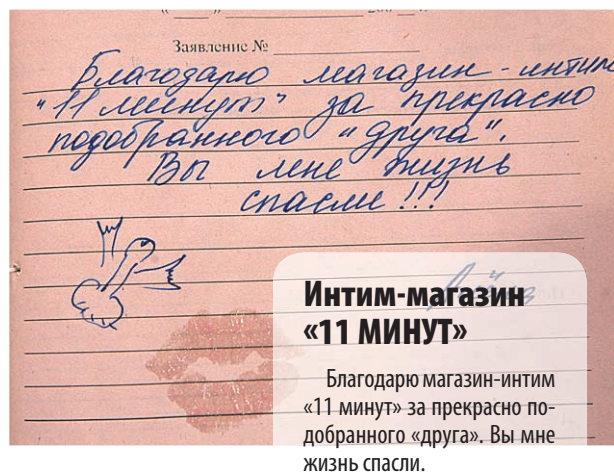 Заявление №
Благодарю магазин-интим
"11 минут" за прекрасно
подобранного "друга".
Вы мне жизнь
спасли!!!
Интим-магазин
«11 МИНУТ»
Благодарю магазин-интим
«11 минут» за прекрасно по-
добранного «друга». Вы мне
жизнь спасли.